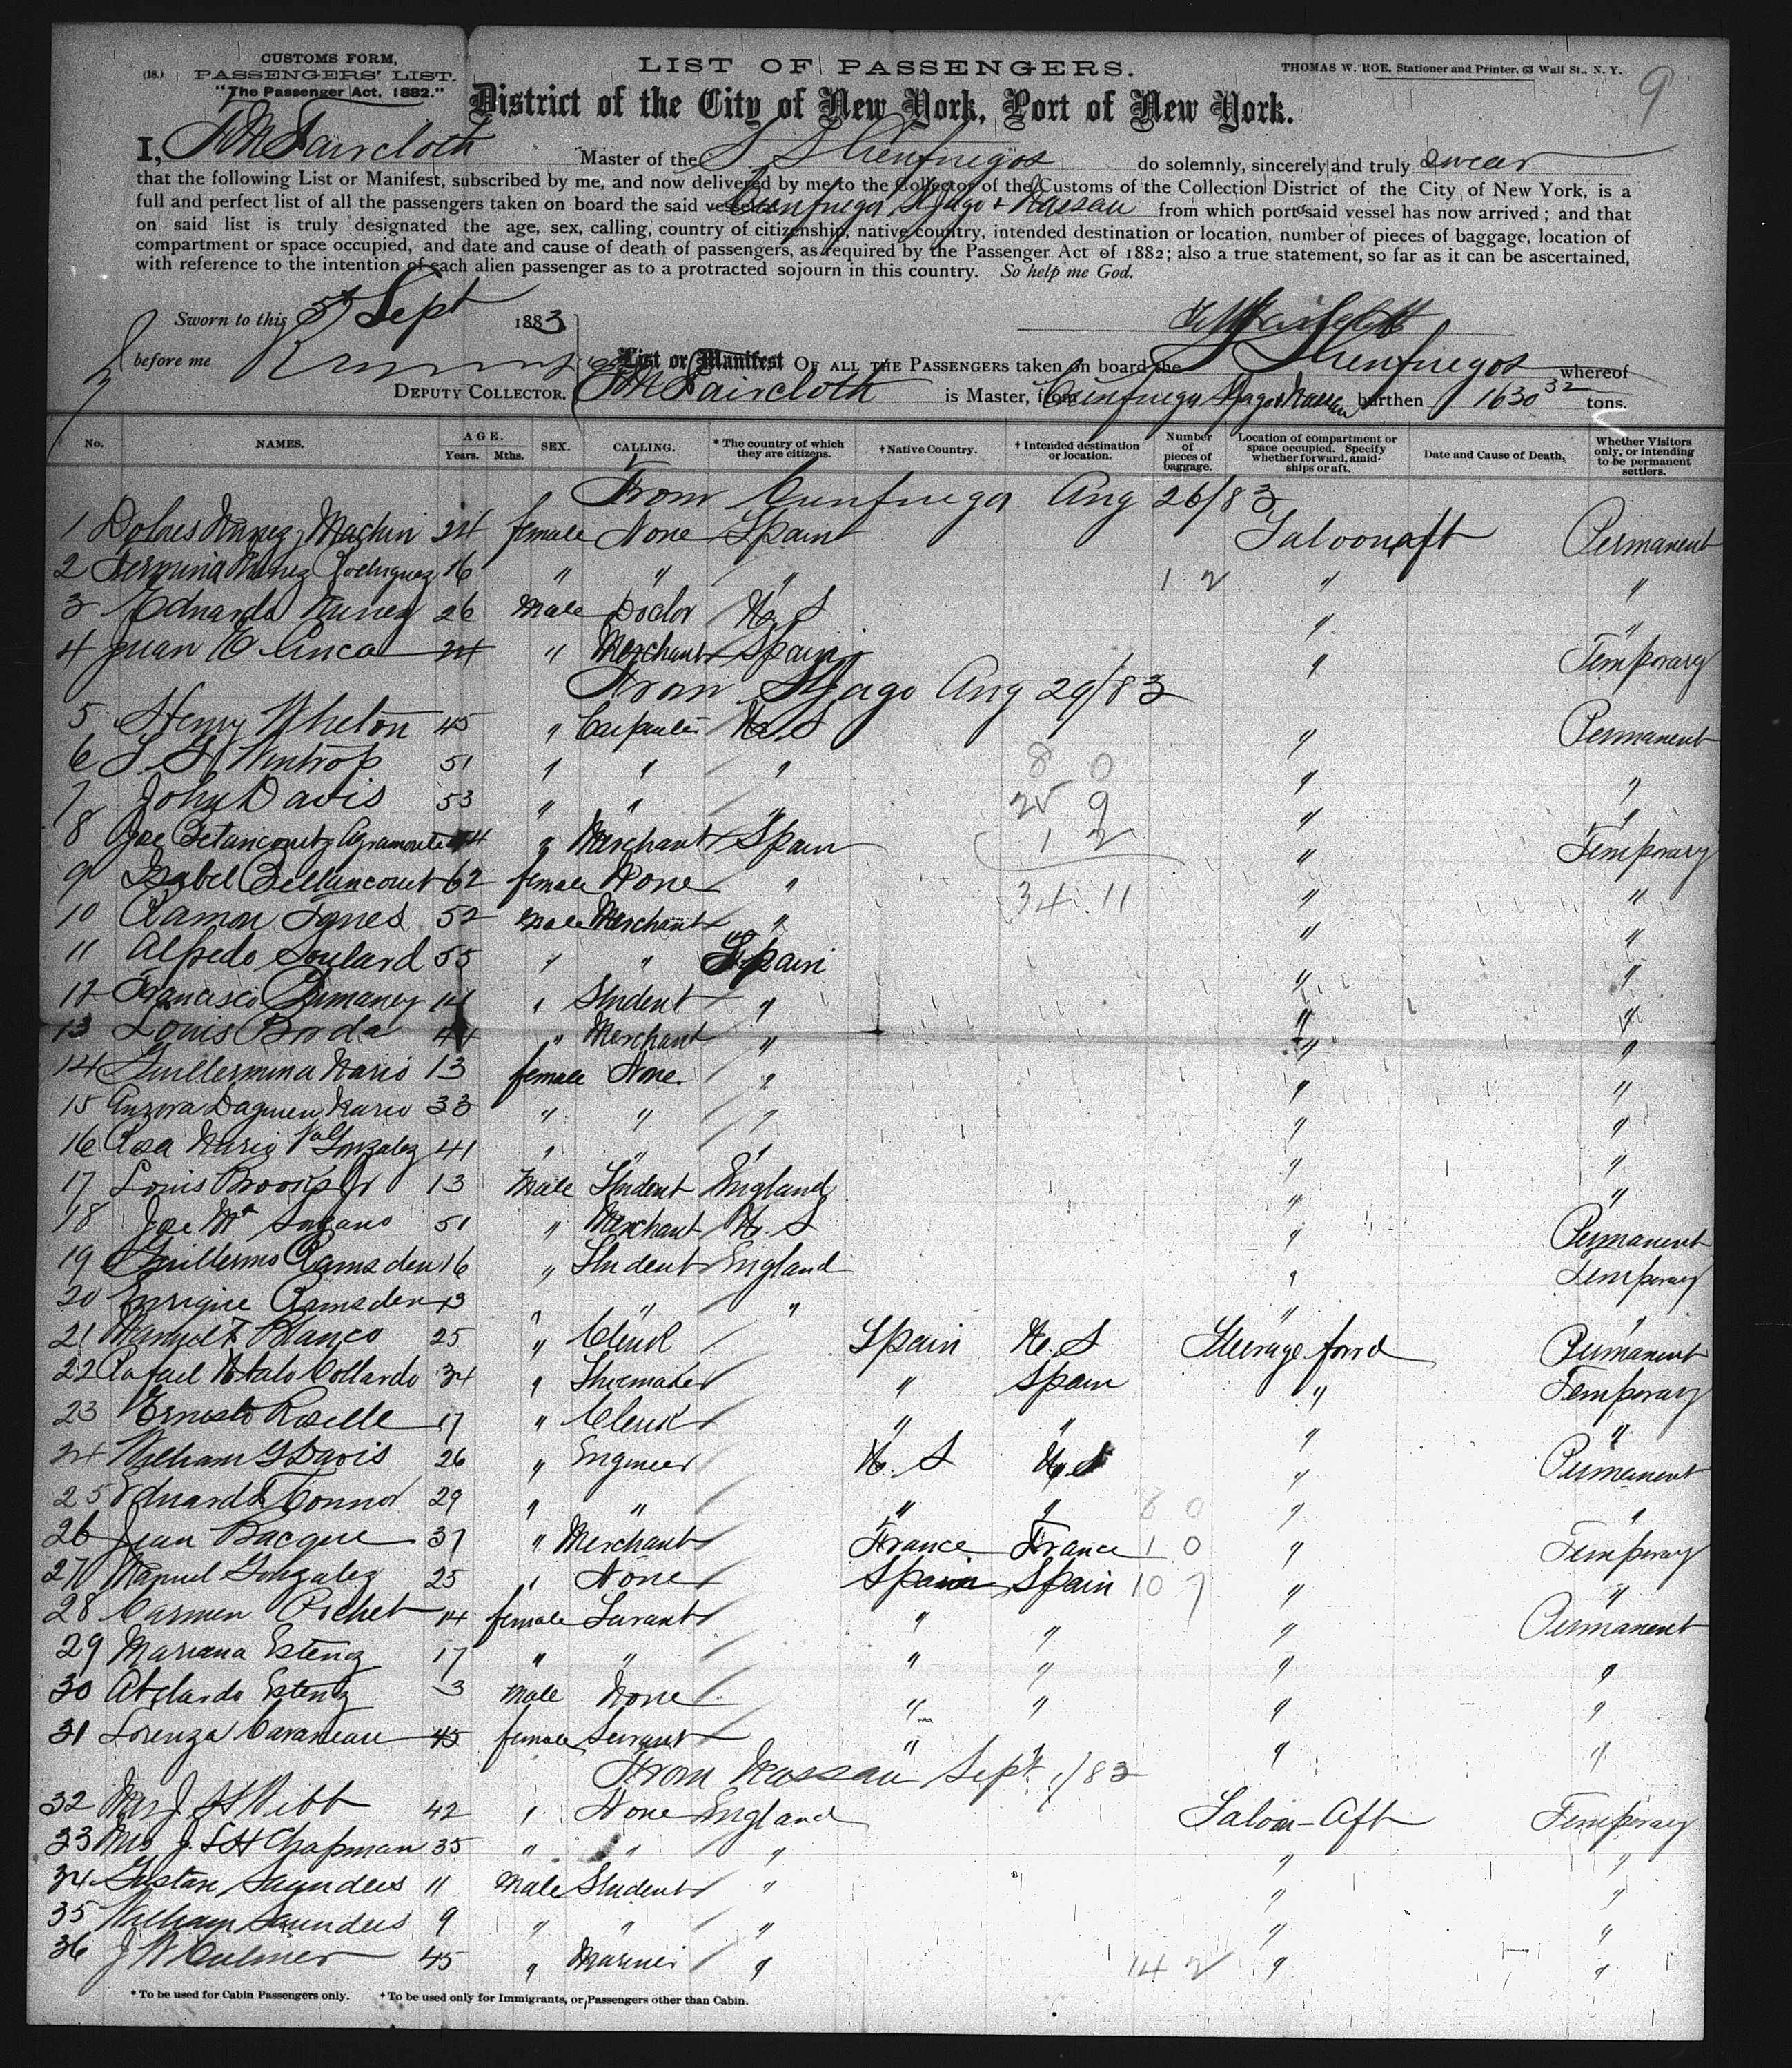 CUSTOMS FORM,
(18.) PASSENGERS' LIST.
"The Passenger Act, 1882."
LIST OF PASSENGERS.
THOMAS W. ROE, Stationer and Printer, 63 Wall St., N. Y.
9
District of the City of New York, Port of New York.
I, F M Faircloth Master of the S S Cienfuegos do solemnly, sincerely and truly swear
that the following List or Manifest, subscribed by me, and now delivered by me to the Collector of the Customs of the Collection District of the City of New York, is a
full and perfect list of all the passengers taken on board the said vessel at Cienfuegos, St Jago & Nassau from which ports said vessel has now arrived; and that
on said list is truly designated the age, sex, calling, country of citizenship, native country, intended destination or location, number of pieces of baggage, location of
compartment or space occupied, and date and cause of death of passengers, as required by the Passenger Act of 1882; also a true statement, so far as it can be ascertained,
with reference to the intention of each alien passenger as to a protracted sojourn in this country. So help me God.
Sworn to this 5th Sept 1883
F M Faircloth
before me
DEPUTY COLLECTOR.
List or Manifest OF ALL THE PASSENGERS taken on board the S S Cienfuegos whereof
F M Faircloth is Master, from Cienfuegos, St Jago & Nassau burthen 1630 32 tons.
No. NAMES. AGE. Years. Mths. SEX. CALLING. * The country of which they are citizens. † Native Country. † Intended destination or location. Number of pieces of baggage. Location of compartment or space occupied. Specify whether forward, amidships or aft. Date and Cause of Death. Whether Visitors only, or intending to be permanent settlers.
From Cienfuegos Aug 26/83
1 Dolores Nunez y Machin 24 female None Spain Saloon aft Permanent
2 Hermina Nunez Rodriguez 16 " " " 1 2 " "
3 Eduardo Nunez 26 Male Doctor U. S " "
4 Juan E 24 " Merchant Spain " Temporary
From St Jago Aug 29/83
5 Henry Whelton 45 " Carpenter U. S " Permanent
6 Wintrop 51 " " " 8 0 " "
7 John Davis 53 " " " 25 9 " "
8 Jose Betancourt y Agramonte " Merchant Spain 1 2 " Temporary
9 Isabel Bettancourt 62 female None " 34 11 " "
10 Ramon 52 Male Merchant " " "
11 Alfredo Soulard 55 " " Spain " "
12 Francisco 14 " Student " " "
13 Louis 44 " Merchant " " "
14 Guillermina Nario 13 female None " " "
15 Nario 33 " " " " "
16 Rosa Nario Gonzalez 41 " " " " "
17 Louis Brooks Jr 13 Male Student England " "
18 Jose Ma 51 " Merchant U. S " Permanent
19 Guillermo Ramsden 16 " Student England " Temporary
20 Enrique Ramsden 13 " " " " "
21 Manuel F Blanco 25 " Clerk Spain U. S Steerage forrd Permanent
22 Rafael Collardo 34 " Shoemaker " Spain " Temporary
23 Ernesto Roselle 17 " Clerk " " " "
24 William G Davis 26 " Engineer U. S U. S " Permanent
25 Eduard Connor 29 " " " " 8 0 " "
26 Jean Bacque 37 " Merchant France France 1 0 " Temporary
27 Manuel Gonzalez 25 " None Spain Spain 10 7 " "
28 Carmen Richet 14 female Servant " " " Permanent
29 Mariana Estenoz 17 " " " " " "
30 Abelardo Estenoz 3 Male None " " " "
31 Lorenza 45 female Servant " " " "
From Nassau Sept 1/83
32 Mrs J. H Webb 42 " None England Saloon - Aft Temporary
33 Mrs J. S H Chapman 35 " " " " "
34 Gustave Saunders 11 Male Student " " "
35 William Saunders 9 " " " " "
36 J W Culmer 45 " Mariner " 14 2 " "
* To be used for Cabin Passengers only. † To be used only for Immigrants, or Passengers other than Cabin.